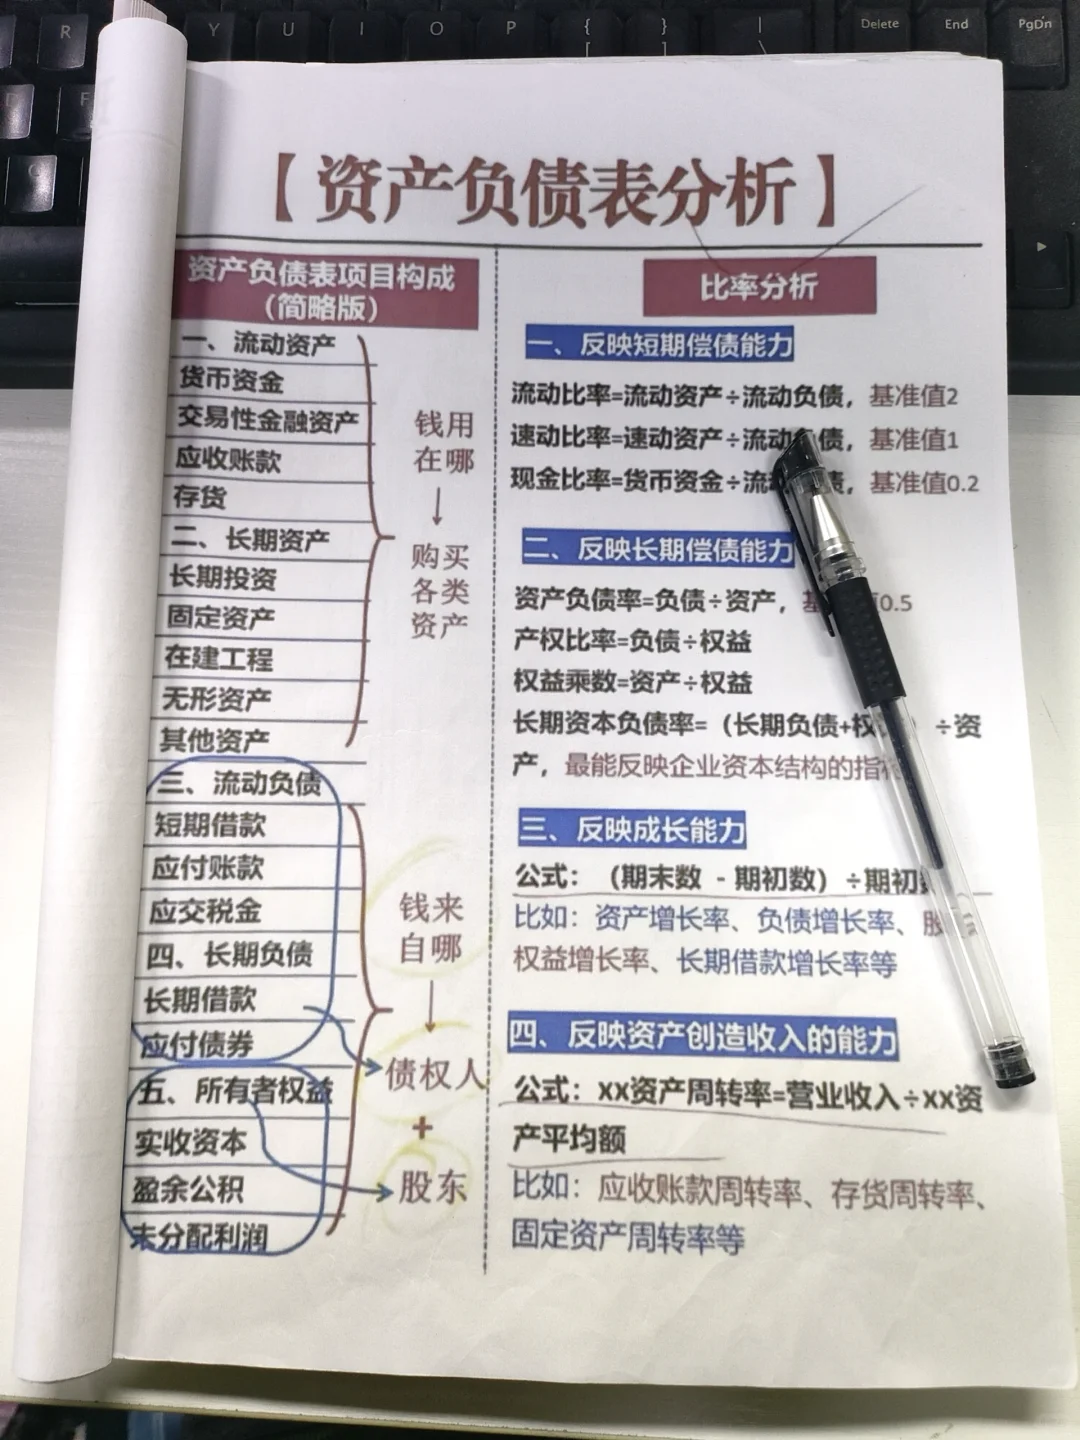 R Y U I O P { [ } ] | \ Delete End PgDn
F
C
【资产负债表分析】
资产负债表项目构成
（简略版）
一、流动资产
货币资金
交易性金融资产
应收账款
存货
二、长期资产
长期投资
固定资产
在建工程
无形资产
其他资产
三、流动负债
短期借款
应付账款
应交税金
四、长期负债
长期借款
应付债券
五、所有者权益
实收资本
盈余公积
未分配利润
钱用
在哪
↓
购买
各类
资产
钱来
自哪
↓
债权人
+
股东
比率分析
一、反映短期偿债能力
流动比率=流动资产÷流动负债，基准值2
速动比率=速动资产÷流动 债，基准值1
现金比率=货币资金÷流 债，基准值0.2
二、反映长期偿债能力
资产负债率=负债÷资产， 0.5
产权比率=负债÷权益
权益乘数=资产÷权益
长期资本负债率=（长期负债+权 ÷资
产，最能反映企业资本结构的指
三、反映成长能力
公式：（期末数 - 期初数）÷期初
比如：资产增长率、负债增长率、股
权益增长率、长期借款增长率等
四、反映资产创造收入的能力
公式：xx资产周转率=营业收入÷xx资
产平均额
比如：应收账款周转率、存货周转率、
固定资产周转率等